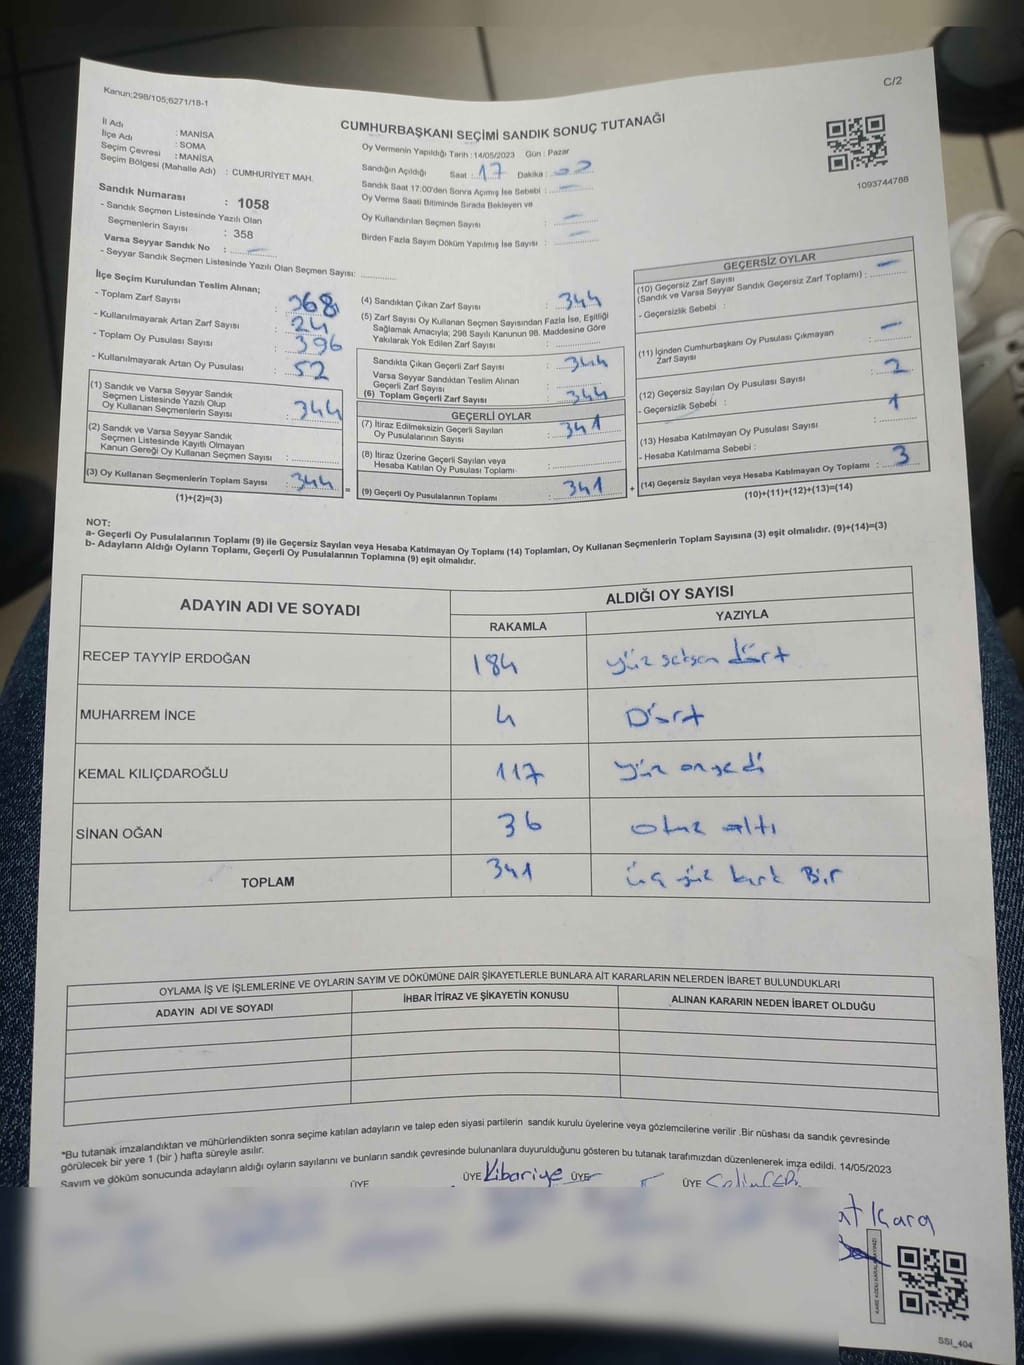 Kanun;298/105;6271/18-1
C/2
CUMHURBAŞKANI SEÇİMİ SANDIK SONUÇ TUTANAĞI
İl Adı : MANİSA
İlçe Adı : SOMA
Seçim Çevresi : MANİSA
Seçim Bölgesi (Mahalle Adı) : CUMHURİYET MAH.
Sandık Numarası : 1058
- Sandık Seçmen Listesinde Yazılı Olan
Seçmenlerin Sayısı : 358
Varsa Seyyar Sandık No : –
- Seyyar Sandık Seçmen Listesinde Yazılı Olan Seçmen Sayısı:
Oy Vermenin Yapıldığı Tarih : 14/05/2023 Gün : Pazar
Sandığın Açıldığı Saat : 17 Dakika :
Sandık Saat 17:00'den Sonra Açımış İse Sebebi : –
Oy Verme Saati Bitiminde Sırada Bekleyen ve
Oy Kullandırılan Seçmen Sayısı : –
Birden Fazla Sayım Döküm Yapılmış İse Sayısı : –
1093744788
İlçe Seçim Kurulundan Teslim Alınan;
- Toplam Zarf Sayısı : 368
- Kullanılmayarak Artan Zarf Sayısı : 24
- Toplam Oy Pusulası Sayısı : 396
- Kullanılmayarak Artan Oy Pusulası : 52
(1) Sandık ve Varsa Seyyar Sandık
Seçmen Listesinde Yazılı Olup
Oy Kullanan Seçmenlerin Sayısı : 344
(2) Sandık ve Varsa Seyyar Sandık
Seçmen Listesinde Kayıtlı Olmayan
Kanun Gereği Oy Kullanan Seçmen Sayısı :
(3) Oy Kullanan Seçmenlerin Toplam Sayısı : 344
(1)+(2)=(3)
(4) Sandıktan Çıkan Zarf Sayısı : 344
(5) Zarf Sayısı Oy Kullanan Seçmen Sayısından Fazla İse, Eşitliği
Sağlamak Amacıyla; 298 Sayılı Kanunun 98. Maddesine Göre
Yakılarak Yok Edilen Zarf Sayısı :
Sandıkta Çıkan Geçerli Zarf Sayısı : 344
Varsa Seyyar Sandıktan Teslim Alınan
Geçerli Zarf Sayısı :
(6) Toplam Geçerli Zarf Sayısı : 344
GEÇERLİ OYLAR
(7) İtiraz Edilmeksizin Geçerli Sayılan
Oy Pusulalarının Sayısı : 341
(8) İtiraz Üzerine Geçerli Sayılan veya
Hesaba Katılan Oy Pusulası Toplamı :
(9) Geçerli Oy Pusulalarının Toplamı : 341
GEÇERSİZ OYLAR
(10) Geçersiz Zarf Sayısı
(Sandık ve Varsa Seyyar Sandık Geçersiz Zarf Toplamı) : –
- Geçersizlik Sebebi :
(11) İçinden Cumhurbaşkanı Oy Pusulası Çıkmayan
Zarf Sayısı : –
(12) Geçersiz Sayılan Oy Pusulası Sayısı : 2
- Geçersizlik Sebebi :
(13) Hesaba Katılmayan Oy Pusulası Sayısı : 1
- Hesaba Katılmama Sebebi :
(14) Geçersiz Sayılan veya Hesaba Katılmayan Oy Toplamı : 3
(10)+(11)+(12)+(13)=(14)
NOT:
a- Geçerli Oy Pusulalarının Toplamı (9) ile Geçersiz Sayılan veya Hesaba Katılmayan Oy Toplamı (14) Toplamları, Oy Kullanan Seçmenlerin Toplam Sayısına (3) eşit olmalıdır. (9)+(14)=(3)
b- Adayların Aldığı Oyların Toplamı, Geçerli Oy Pusulalarının Toplamına (9) eşit olmalıdır.
ADAYIN ADI VE SOYADI
ALDIĞI OY SAYISI
RAKAMLA YAZIYLA
RECEP TAYYİP ERDOĞAN 184 yüz seksen dört
MUHARREM İNCE 4 Dört
KEMAL KILIÇDAROĞLU 117 yüz onyedi
SİNAN OĞAN 36 otuz altı
TOPLAM 341 üç yüz kırk Bir
OYLAMA İŞ VE İŞLEMLERİNE VE OYLARIN SAYIM VE DÖKÜMÜNE DAİR ŞİKAYETLERLE BUNLARA AİT KARARLARIN NELERDEN İBARET BULUNDUKLARI
ADAYIN ADI VE SOYADI İHBAR İTİRAZ VE ŞİKAYETİN KONUSU ALINAN KARARIN NEDEN İBARET OLDUĞU
*Bu tutanak imzalandıktan ve mühürlendikten sonra seçime katılan adayların ve talep eden siyasi partilerin sandık kurulu üyelerine veya gözlemcilerine verilir .Bir nüshası da sandık çevresinde
görülecek bir yere 1 (bir ) hafta süreyle asılır.
Sayım ve döküm sonucunda adayların aldığı oyların sayılarını ve bunların sandık çevresinde bulunanlara duyurulduğunu gösteren bu tutanak tarafımızdan düzenlenerek imza edildi. 14/05/2023
ÜYE ÜYE Kibariye ÜYE ÜYE
Kara
SSI_404